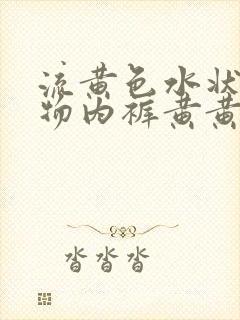 流黄色水状
物内裤黄黄
沓沓沓